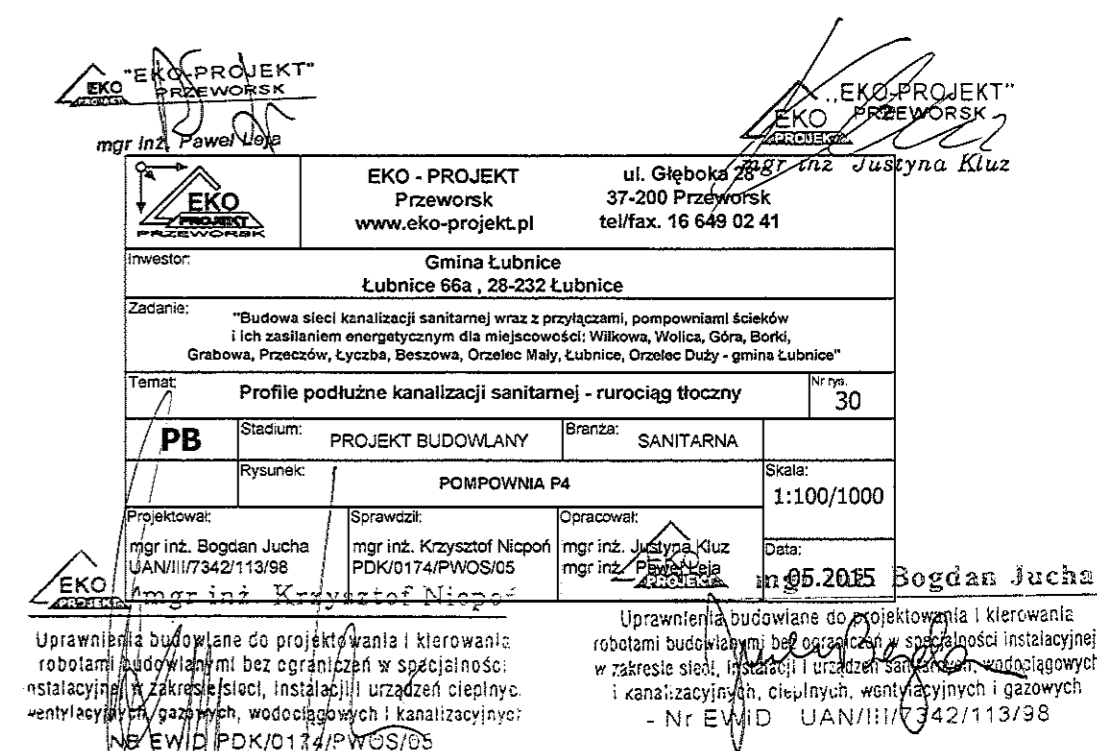 "EKO-PROJEKT"
PRZEWORSK
EKO
PROJEKT
mgr inż. Paweł Leja
,,EKO-PROJEKT"
PRZEWORSK
EKO
PROJEKT
mgr inż Justyna Kluz
EKO
PROJEKT
PRZEWORSK
EKO - PROJEKT
Przeworsk
www.eko-projekt.pl
ul. Głęboka 28
37-200 Przeworsk
tel/fax. 16 649 02 41
Inwestor:
Gmina Łubnice
Łubnice 66a , 28-232 Łubnice
Zadanie:
"Budowa sieci kanalizacji sanitarnej wraz z przyłączami, pompowniami ścieków
i ich zasilaniem energetycznym dla miejscowości: Wilkowa, Wolica, Góra, Borki,
Grabowa, Przeczów, Łyczba, Beszowa, Orzelec Mały, Łubnice, Orzelec Duży - gmina Łubnice"
Temat:
Profile podłużne kanalizacji sanitarnej - rurociąg tłoczny
Nr rys.
30
PB
Stadium:
PROJEKT BUDOWLANY
Branża:
SANITARNA
Rysunek:
POMPOWNIA P4
Skala:
1:100/1000
Projektował:
mgr inż. Bogdan Jucha
UAN/III/7342/113/98
Sprawdził:
mgr inż. Krzysztof Nicpoń
PDK/0174/PWOS/05
Opracował:
mgr inż. Justyna Kluz
mgr inż. Paweł Leja
Data:
05.2015
EKO
PROJEKT
EKO
PROJEKT
mgr inż Krzysztof Nicpoń
Uprawnienia budowlane do projektowania i kierowania
robotami budowlanymi bez ograniczeń w specjalności
instalacyjnej w zakresie sieci, instalacji i urządzeń cieplnych
wentylacyjnych, gazowych, wodociągowych i kanalizacyjnych
NR EWID PDK/0174/PWOS/05
mgr inż Bogdan Jucha
Uprawnienia budowlane do projektowania i kierowania
robotami budowlanymi bez ograniczeń w specjalności instalacyjnej
w zakresie sieci, instalacji i urządzeń sanitarnych, wodociągowych
i kanalizacyjnych, cieplnych, wentylacyjnych i gazowych
- Nr EWID UAN/III/7342/113/98